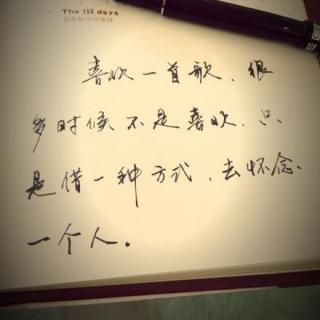 The 158 days
喜欢一首歌，很
多时候不是喜欢，只
是借一种方式，去怀念
一个人。